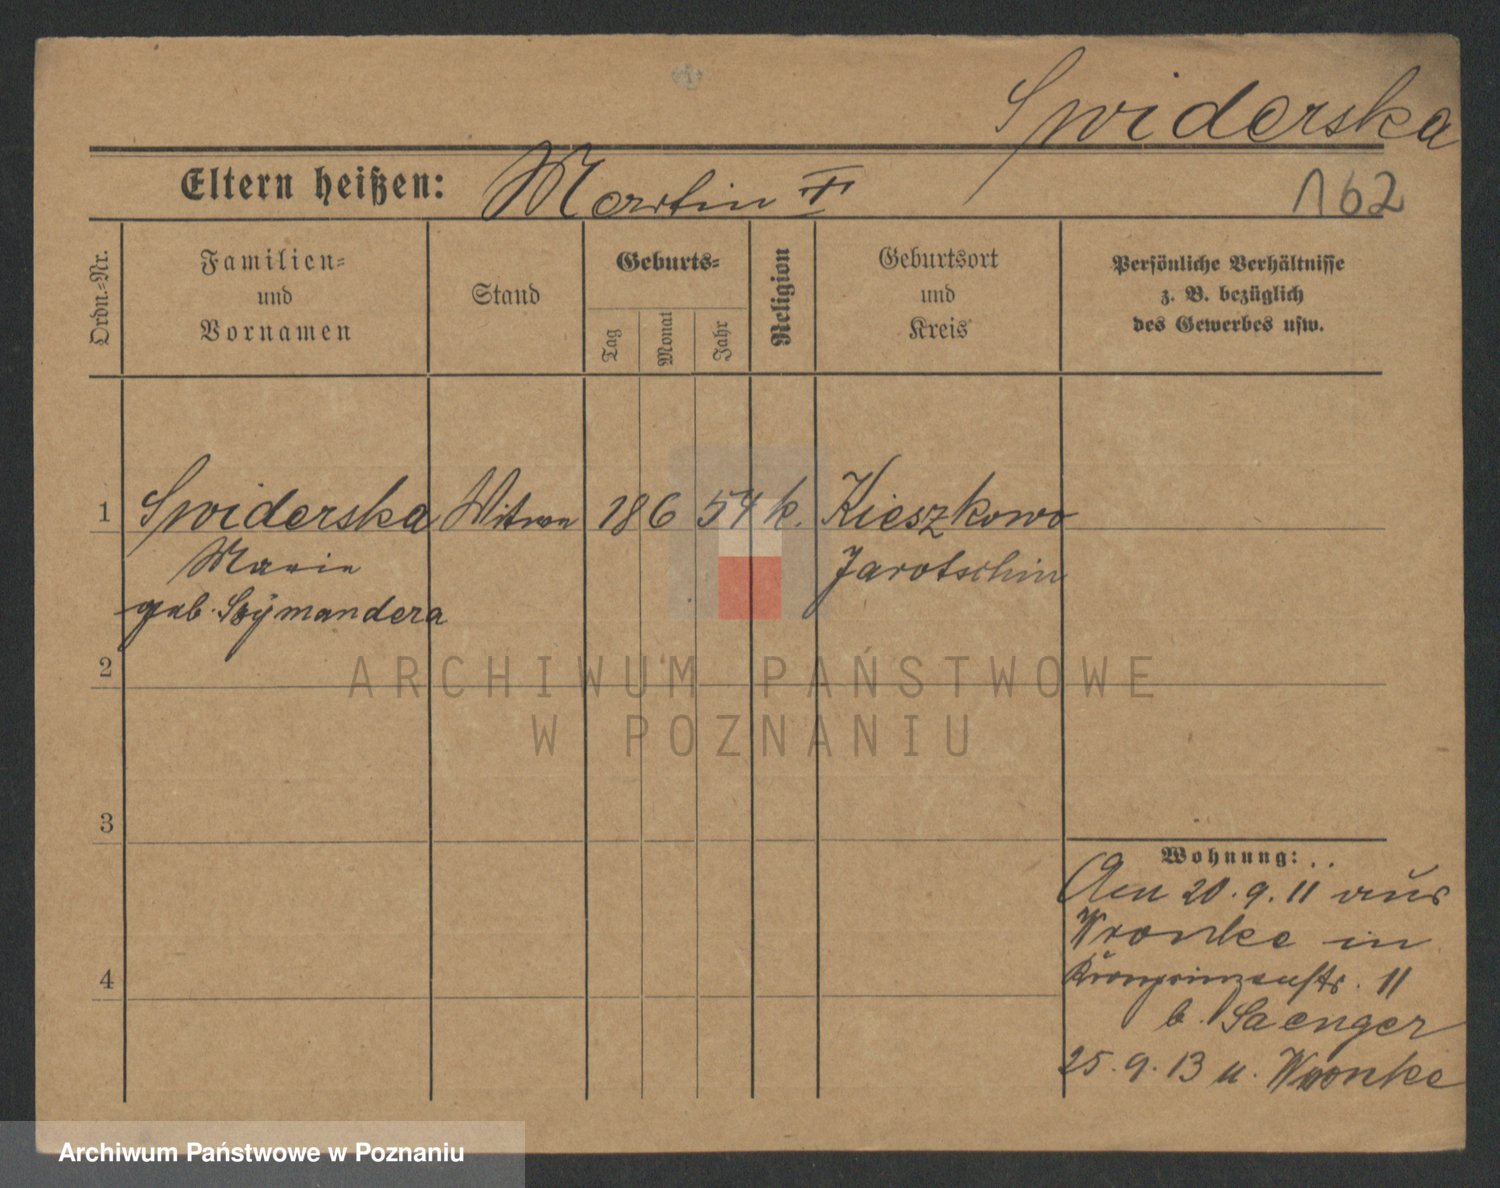 Swiderska
Eltern heißen: Martin †
162
Ordn.-Nr.
Familien-
und
Vornamen
Stand
Geburts-
Tag
Monat
Jahr
Religion
Geburtsort
und
Kreis
Persönliche Verhältnisse
z. B. bezüglich
des Gewerbes usw.
1 Swiderska Witwe 18 6 54 k. Kieszkowo
Marie Jarotschin
geb. Szÿmandera
2
ARCHIWUM PAŃSTWOWE
W POZNANIU
3
Wohnung:
Am 20.9.11 aus
Wronke in
4
Kronprinzenstr. 11
b. Saenger
25.9.13 n. Wronke
Archiwum Państwowe w Poznaniu